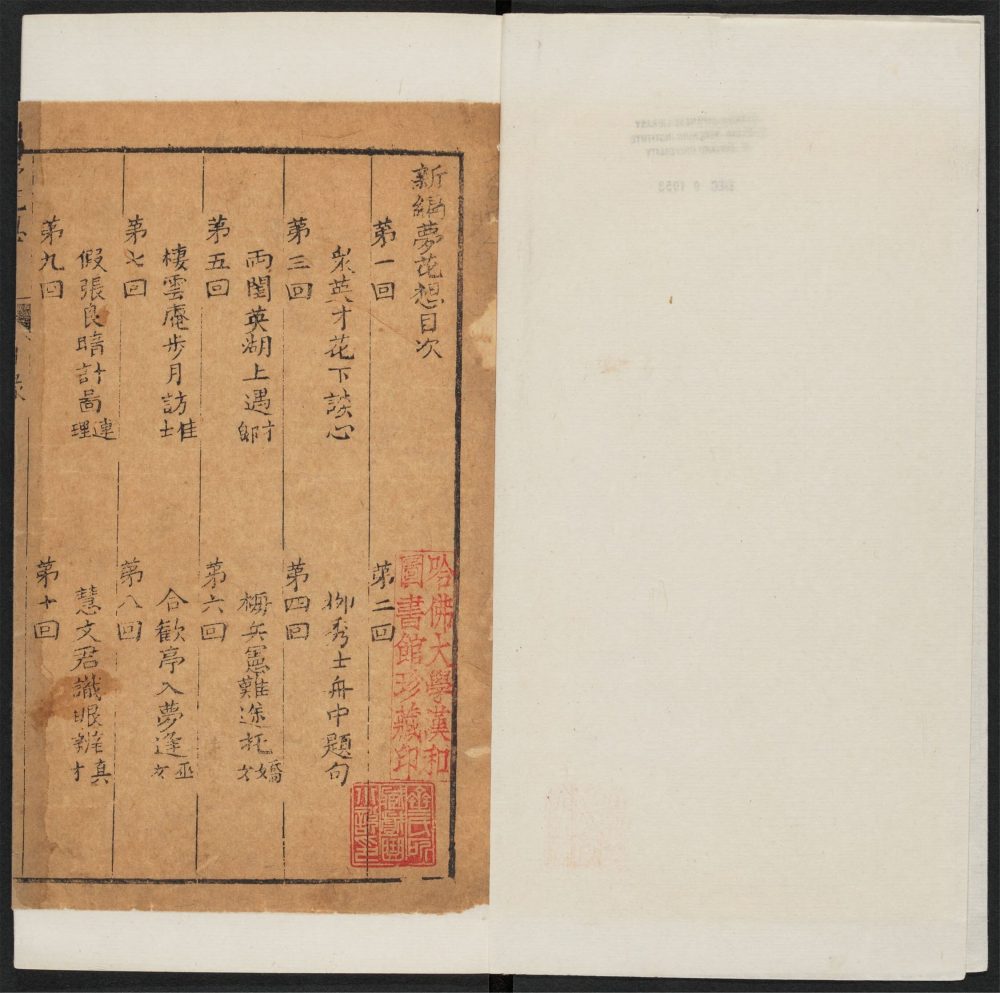 新編夢花想目次
第一回 第二回
眾英才花下談心 柳秀士舟中題句
第三回 第四回
兩閨英湖上遇才郎 梅兵憲難途托嬌女
第五回 第六回
棲雲庵步月訪佳士 合歡亭入夢逢巫女
第七回 第八回
假張良暗計啚連理 慧文君識眼辨真才
第九回 第十回
哈佛大學漢和
圖書館珍藏印
齊氏所
藏戲曲
小說印